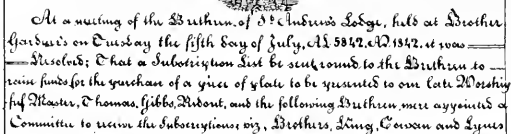 At a meeting of the Brethren of St. Andrew's Lodge, held at Brother
Gardner's on Tuesday the fifth day of July, AL 5842, AD 1842, it was
Resolved; That a Subscription List be sent round to the Brethren to
raise funds for the purchase of a piece of plate to be presented to our late Worship
ful Master, Thomas, Gibbs, Ridout, and the following Brethren, were appointed a
Committee to receive the Subscriptions; viz, Brothers, King, Cowan and